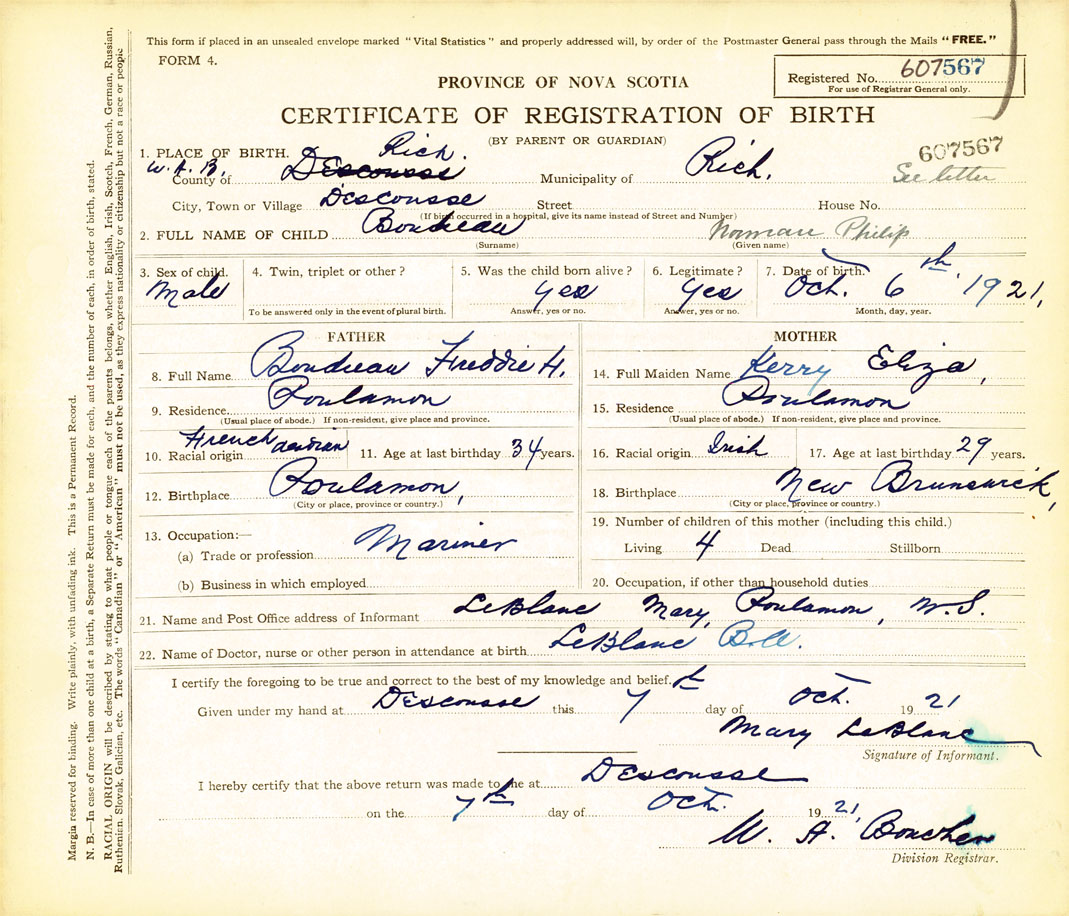 This form if placed in an unsealed envelope marked "Vital Statistics" and properly addressed will, by order of the Postmaster General pass through the Mails "FREE."
FORM 4.
Registered No. 607567
For use of Registrar General only.
PROVINCE OF NOVA SCOTIA
CERTIFICATE OF REGISTRATION OF BIRTH
(BY PARENT OR GUARDIAN)
607567
See letter
1. PLACE OF BIRTH.
W. A. B.
County of Descousse Rich. Municipality of Rich.
City, Town or Village Descousse Street House No.
(If birth occurred in a hospital, give its name instead of Street and Number)
2. FULL NAME OF CHILD Boudreau Norman Philip
(Surname) (Given name)
3. Sex of child. Male
4. Twin, triplet or other?
To be answered only in the event of plural birth.
5. Was the child born alive? Yes
Answer, yes or no.
6. Legitimate? Yes
Answer, yes or no.
7. Date of birth. Oct. 6th, 1921,
Month, day, year.
FATHER
8. Full Name Boudreau Freddie H.
9. Residence Poulamon
(Usual place of abode.) If non-resident, give place and province.
10. Racial origin French acadian 11. Age at last birthday 34 years.
12. Birthplace Poulamon,
(City or place, province or country.)
13. Occupation:—
(a) Trade or profession Mariner
(b) Business in which employed
MOTHER
14. Full Maiden Name Kerry Eliza,
15. Residence Poulamon
(Usual place of abode.) If non-resident, give place and province.
16. Racial origin Irish 17. Age at last birthday 29 years.
18. Birthplace New Brunswick,
(City or place, province or country.)
19. Number of children of this mother (including this child.)
Living 4 Dead Stillborn
20. Occupation, if other than household duties
21. Name and Post Office address of Informant LeBlanc Mary, Poulamon, N.S.
22. Name of Doctor, nurse or other person in attendance at birth LeBlanc
I certify the foregoing to be true and correct to the best of my knowledge and belief.
Given under my hand at Descousse this 7th day of Oct. 1921
Mary LeBlanc
Signature of Informant.
I hereby certify that the above return was made to me at Descousse
on the 7th day of Oct. 1921,
W. A. Boucher
Division Registrar.
Margin reserved for binding. Write plainly, with unfading ink. This is a Permanent Record.
N. B.—In case of more than one child at a birth, a Separate Return must be made for each, and the number of each, in order of birth, stated.
RACIAL ORIGIN will be described by stating to what people or tongue each of the parents belongs, whether English, Irish, Scotch, French, German, Russian,
Ruthenian, Slovak, Galician, etc. The words "Canadian" or "American" must not be used, as they express nationality or citizenship but not a race or people